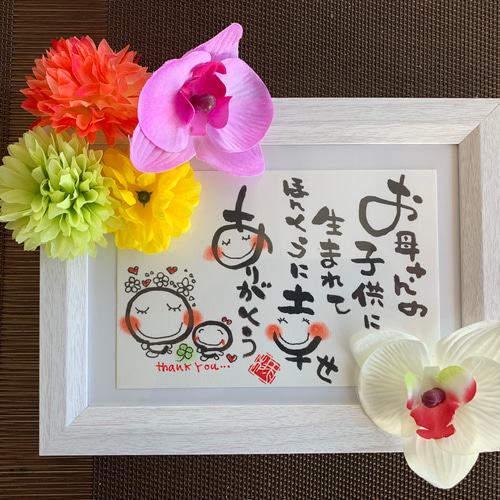 お母さんの
子供に
生まれて
ほんとうに
幸せ
ありがとう
thank you...